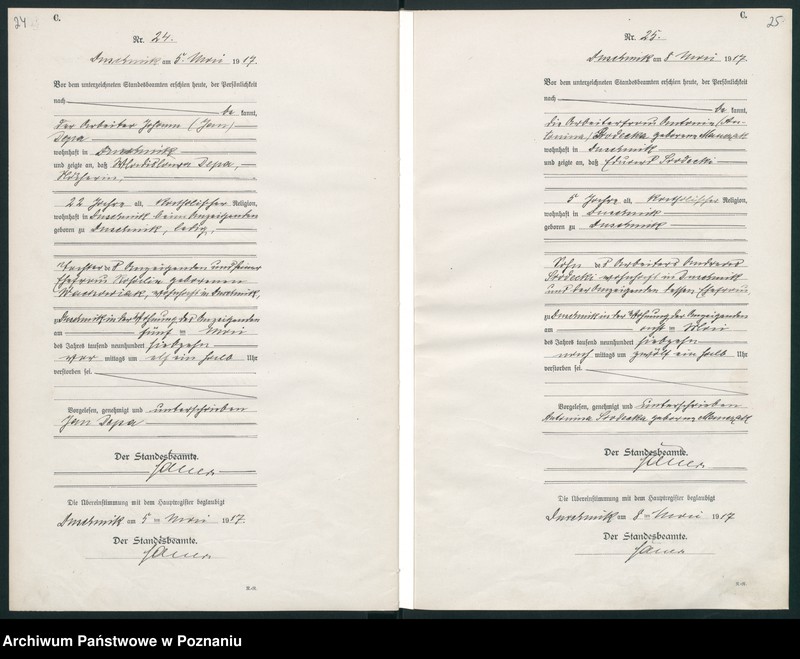 24
C.
Nr. 24.
am 5. Mai 1917.
Vor dem unterzeichneten Standesbeamten erschien heute, der Persönlichkeit
nach be kannt,
der Arbeiter Johann (Jan)
Depa
wohnhaft in
und zeigte an, daß Wladislawa Depa,
22 Jahre alt, katholischer Religion,
wohnhaft in beim Anzeigenden
geboren zu , ledig,
Tochter des Anzeigenden und seiner
Ehefrau geborenen
wohnhaft in
zu in der Wohnung des Anzeigenden
am fünften Mai
des Jahres tausend neunhundert siebzehn
vor mittags um elf ein halb Uhr
verstorben sei.
Vorgelesen, genehmigt und unterschrieben
Jan Depa
Der Standesbeamte.
Die Übereinstimmung mit dem Hauptregister beglaubigt
am 5ten Mai 1917.
Der Standesbeamte.
25
C.
Nr. 25.
am 8 Mai 1917.
Vor dem unterzeichneten Standesbeamten erschien heute, der Persönlichkeit
nach be kannt,
die Arbeiterfrau Antonie (An-
tonina) geborene
wohnhaft in
und zeigte an, daß Eduard
5 Jahre alt, katholischer Religion,
wohnhaft in
geboren zu
Sohn des Arbeiters
wohnhaft in
und der Anzeigenden dessen Ehefrau,
zu in der Wohnung der Anzeigenden
am achten Mai
des Jahres tausend neunhundert siebzehn
nach mittags um zwölf ein halb Uhr
verstorben sei.
Vorgelesen, genehmigt und unterschrieben
Antonina geborene
Der Standesbeamte.
Die Übereinstimmung mit dem Hauptregister beglaubigt
am 8ten Mai 1917
Der Standesbeamte.
Archiwum Państwowe w Poznaniu